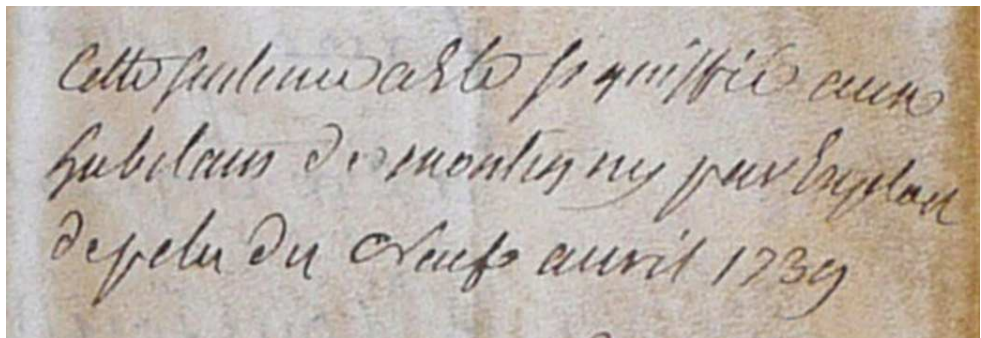 Cette sentence a Esté signiffiée aux
habitans de montigny par Exploit
de pelu du Neuf avril 1739